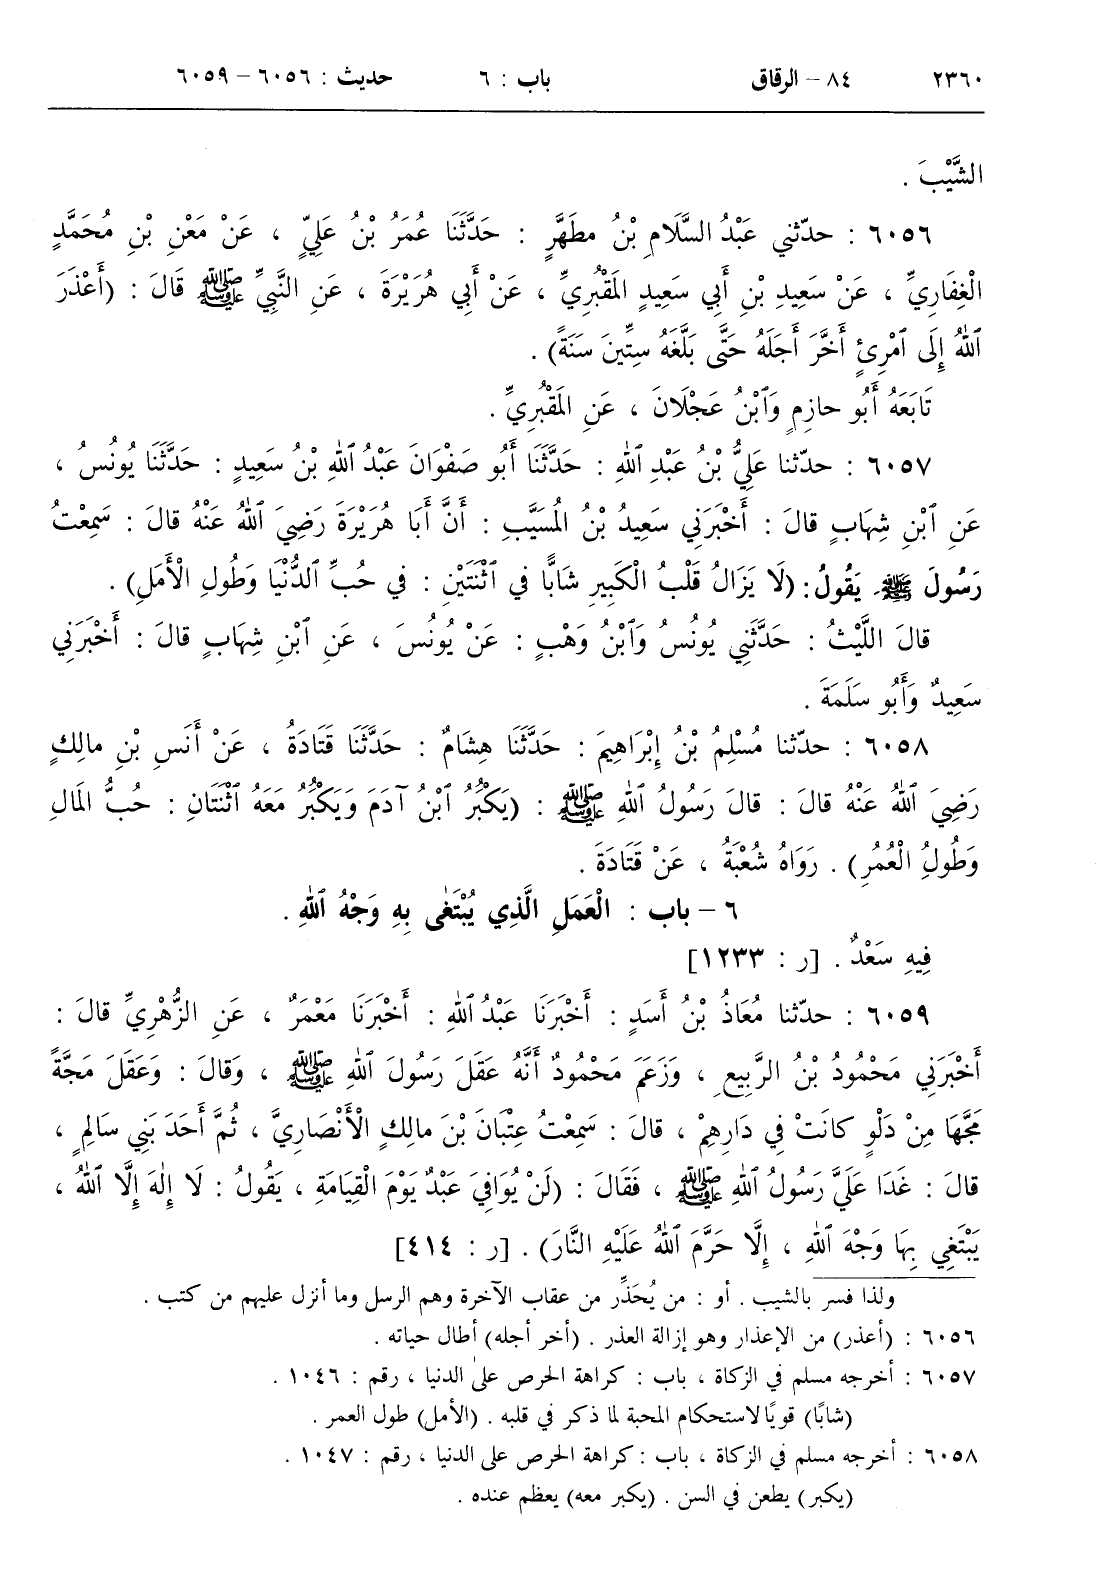 ٢٣٦٠ ٨٤ – الرقاق باب : ٦ حديث : ٦٠٥٦ – ٦٠٥٩
الشَّيْبَ .
٦٠٥٦ : حدّثني عَبْدُ السَّلَامِ بْنُ مطَهَّرٍ : حَدَّثَنَا عُمَرُ بْنُ عَلِيٍّ ، عَنْ مَعْنِ بْنِ مُحَمَّدٍ
الْغِفَارِيِّ ، عَنْ سَعِيدِ بْنِ أَبِي سَعِيدٍ المَقْبُرِيِّ ، عَنْ أَبِي هُرَيْرَةَ ، عَنِ النَّبِيِّ ﷺ قَالَ : (أَعْذَرَ
ٱللهُ إِلَى ٱمْرِئٍ أَخَّرَ أَجَلَهُ حَتَّى بَلَّغَهُ سِتِّينَ سَنَةً) .
تَابَعَهُ أَبُو حازِمٍ وَٱبْنُ عَجْلَانَ ، عَنِ المَقْبُرِيِّ .
٦٠٥٧ : حدّثنا عَلِيُّ بْنُ عَبْدِ ٱللهِ : حَدَّثَنَا أَبُو صَفْوَانَ عَبْدُ ٱللهِ بْنُ سَعِيدٍ : حَدَّثَنَا يُونُسُ ،
عَنِ ٱبْنِ شِهَابٍ قالَ : أَخْبَرَنِي سَعِيدُ بْنُ المُسَيَّبِ : أَنَّ أَبَا هُرَيْرَةَ رَضِيَ ٱللهُ عَنْهُ قالَ : سَمِعْتُ
رَسُولَ ﷺ يَقُولُ : (لَا يَزَالُ قَلْبُ الْكَبِيرِ شَابًّا في ٱثْنَتَيْنِ : في حُبِّ ٱلدُّنْيَا وَطُولِ الْأَمَلِ) .
قالَ اللَّيْثُ : حَدَّثَنِي يُونُسُ وَٱبْنُ وَهْبٍ : عَنْ يُونُسَ ، عَنِ ٱبْنِ شِهَابٍ قالَ : أَخْبَرَنِي
سَعِيدٌ وَأَبُو سَلَمَةَ .
٦٠٥٨ : حدّثنا مُسْلِمُ بْنُ إِبْرَاهِيمَ : حَدَّثَنَا هِشَامٌ : حَدَّثَنَا قَتَادَةُ ، عَنْ أَنَسِ بْنِ مالِكٍ
رَضِيَ ٱللهُ عَنْهُ قالَ : قالَ رَسُولُ ٱللهِ ﷺ : (يَكْبُرُ ٱبْنُ آدَمَ وَيَكْبُرُ مَعَهُ ٱثْنَتَانِ : حُبُّ المَالِ
وَطُولُ الْعُمُرِ) . رَوَاهُ شُعْبَةُ ، عَنْ قَتَادَةَ .
٦ – باب : الْعَمَلِ الَّذِي يُبْتَغَى بِهِ وَجْهُ ٱللهِ .
فِيهِ سَعْدٌ . [ر : ١٢٣٣]
٦٠٥٩ : حدّثنا مُعَاذُ بْنُ أَسَدٍ : أَخْبَرَنَا عَبْدُ ٱللهِ : أَخْبَرَنَا مَعْمَرٌ ، عَنِ الزُّهْرِيِّ قالَ :
أَخْبَرَنِي مَحْمُودُ بْنُ الرَّبِيعِ ، وَزَعَمَ مَحْمُودٌ أَنَّهُ عَقَلَ رَسُولَ ٱللهِ ﷺ ، وَقالَ : وَعَقَلَ مَجَّةً
مَجَّهَا مِنْ دَلْوٍ كانَتْ في دَارِهِمْ ، قالَ : سَمِعْتُ عِتْبَانَ بْنَ مالِكٍ الْأَنْصَارِيَّ ، ثُمَّ أَحَدَ بَنِي سَالِمٍ ،
قالَ : غَدَا عَلَيَّ رَسُولُ ٱللهِ ﷺ ، فَقَالَ : (لَنْ يُوَافِيَ عَبْدٌ يَوْمَ الْقِيَامَةِ ، يَقُولُ : لَا إِلٰهَ إِلَّا ٱللهُ ،
يَبْتَغِي بِهَا وَجْهَ ٱللهِ ، إِلَّا حَرَّمَ ٱللهُ عَلَيْهِ النَّارَ) . [ر : ٤١٤]
ولذا فسر بالشيب . أو : من يُحَذِّر من عقاب الآخرة وهم الرسل وما أنزل عليهم من كتب .
٦٠٥٦ : (أعذر) من الإعذار وهو إزالة العذر . (أخر أجله) أطال حياته .
٦٠٥٧ : أخرجه مسلم في الزكاة ، باب : كراهة الحرص على الدنيا ، رقم : ١٠٤٦ .
(شابًا) قويًا لاستحكام المحبة لما ذكر في قلبه . (الأمل) طول العمر .
٦٠٥٨ : أخرجه مسلم في الزكاة ، باب : كراهة الحرص على الدنيا ، رقم : ١٠٤٧ .
(يكبر) يطعن في السن . (يكبر معه) يعظم عنده .